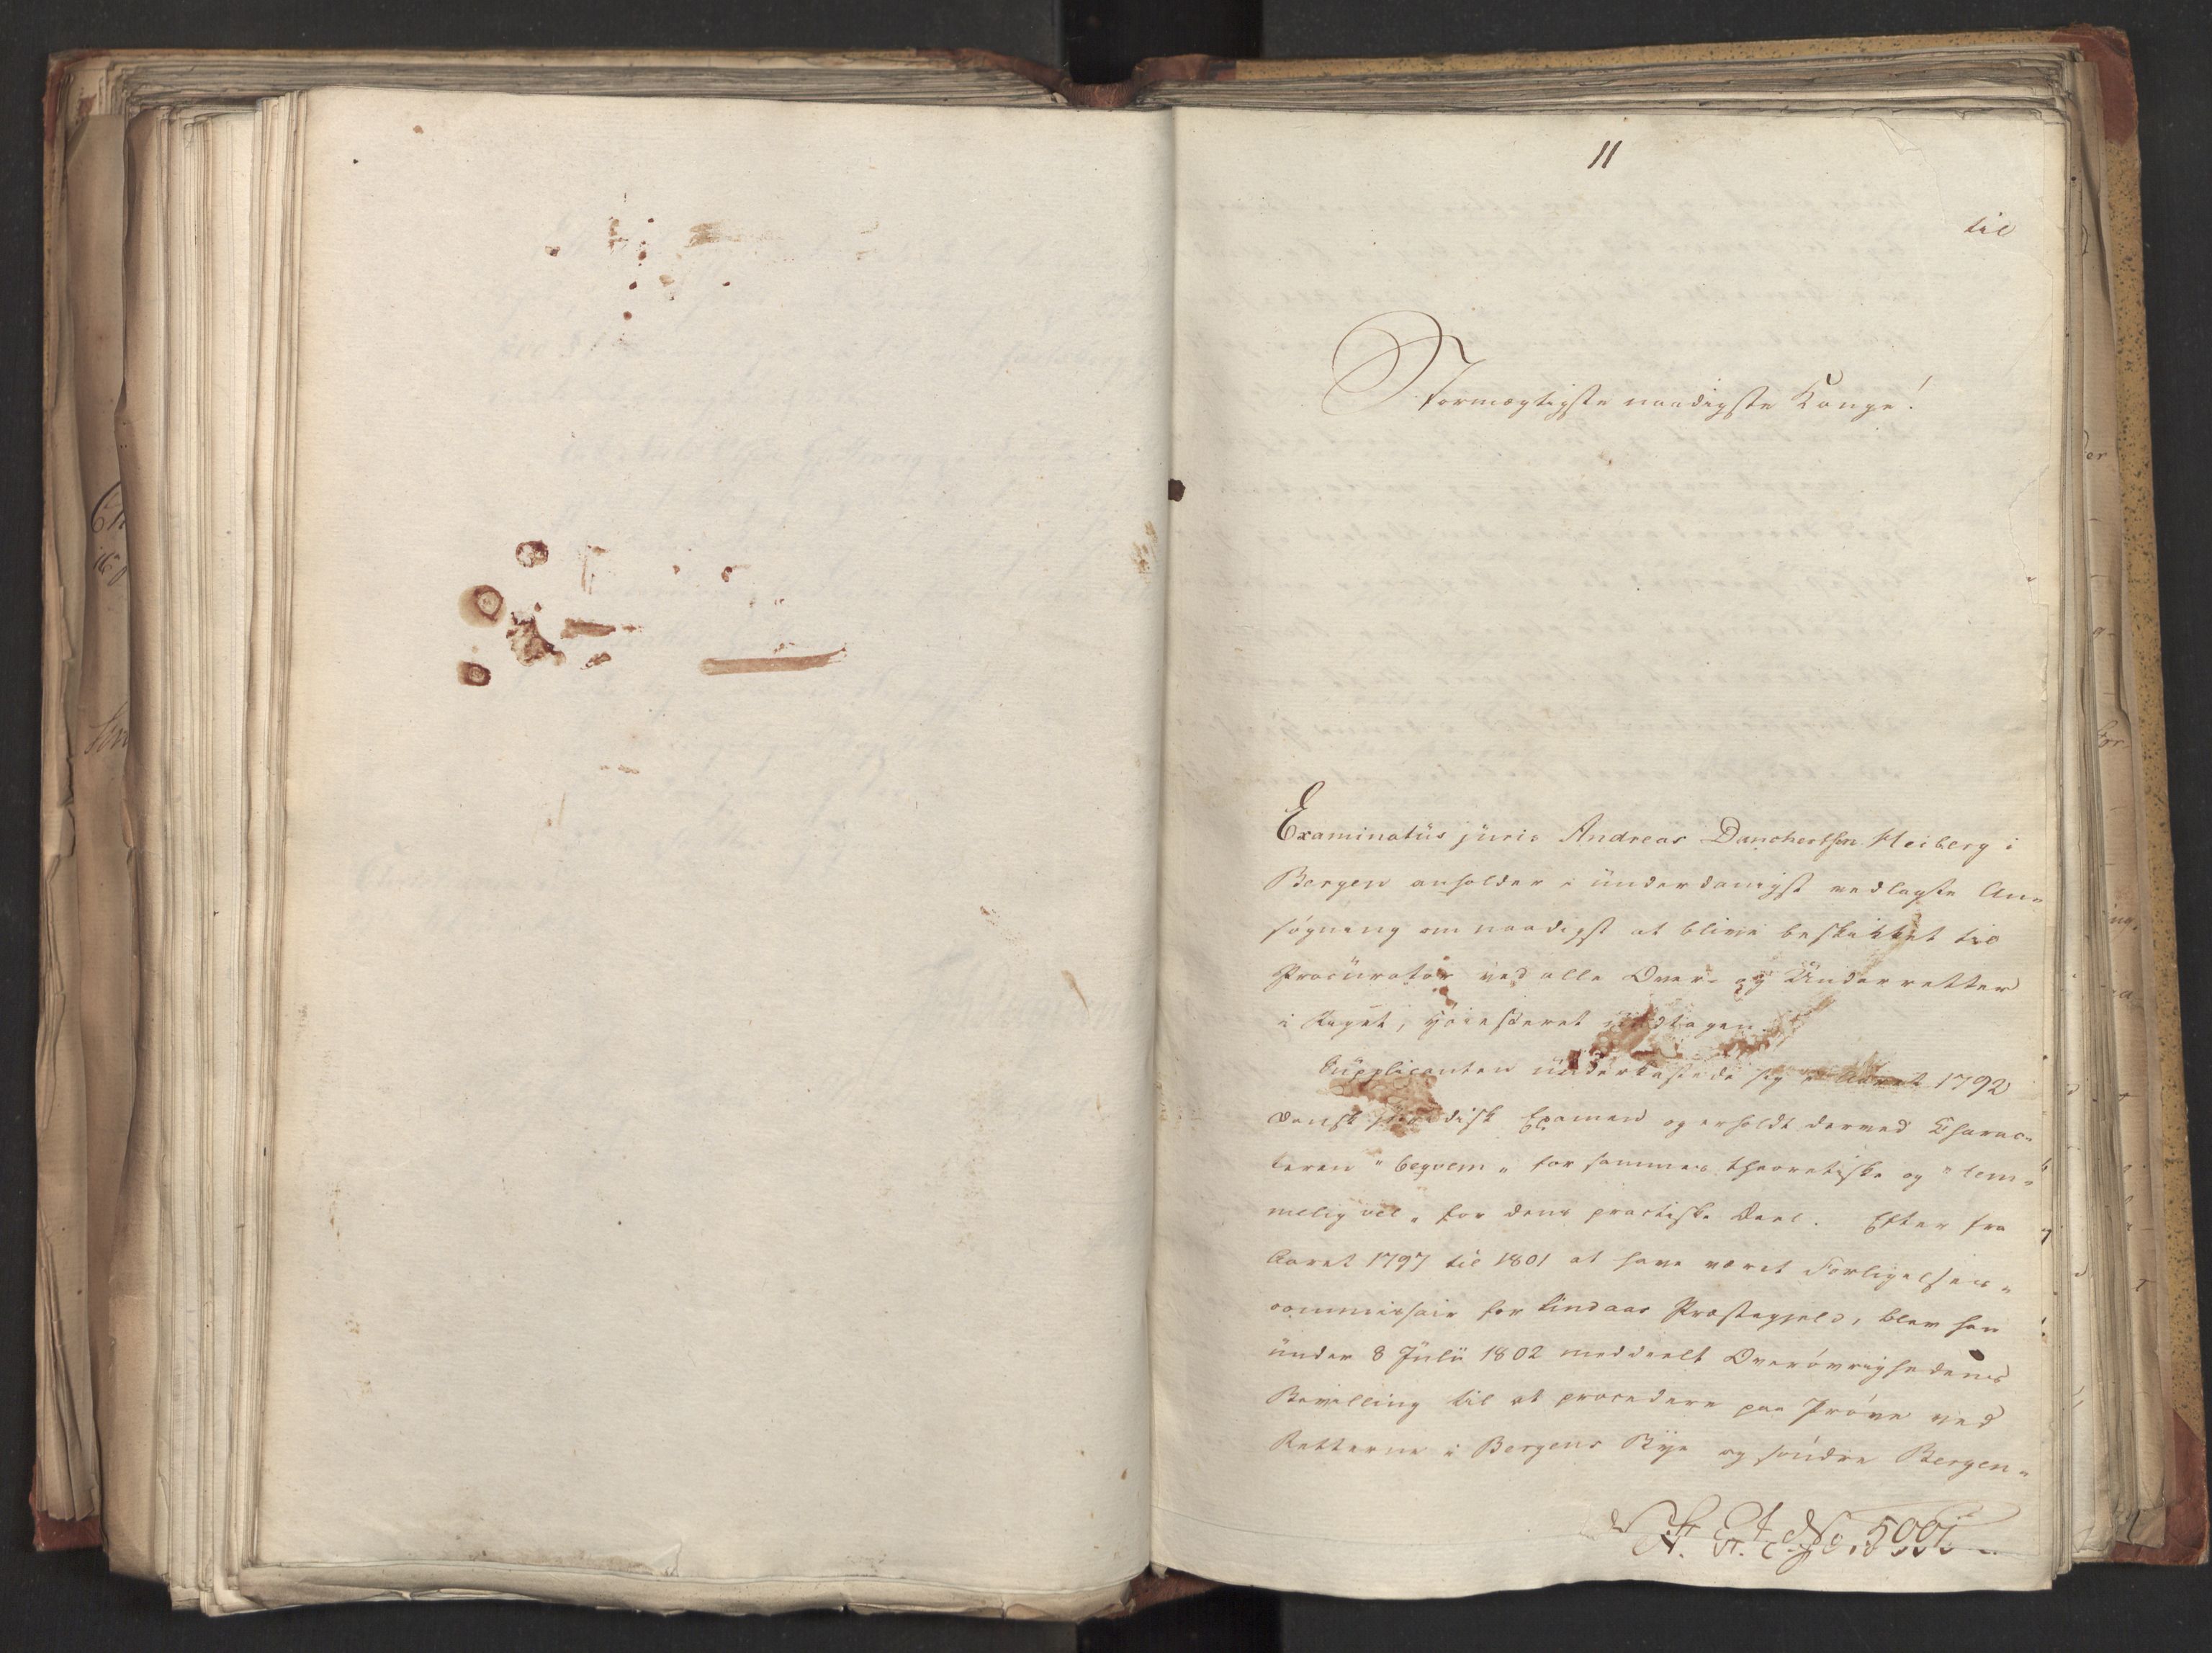 11
til
Stormægtigste naadigste Konge!
Examinatüs jüris Andreas Danchertsen Heiberg i
Bergen anholder i ünderdanigst vedlagte An-
søgning om naadigst at blive beskikket til
Procürator ved alle Over- og Ünderretter
i Riget, Høiesteret ündtagen.
Süpplicanten ünderkastede sig i Aaret 1792
dansk jüridisk Examen og erholdt derved Charac-
teren "beqvem" for sammes theoretiske og "tem-
melig vel" for dens practiske Deel. Efter fra
Aaret 1797 til 1801 at have været Forligelses-
commissair for Lindaas Præstegjeld, blev han
ünder 8 Jülii 1802 meddeelt Overøvrighedens
Bevilling til at procedere paa Prøve ved
Retterne i Bergens Bÿe og søndre Bergen-
No. 5001